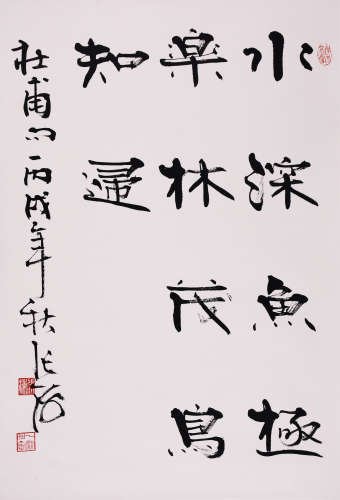 水深魚極
樂林茂鳥
知歸
杜甫句丙戌年秋張海